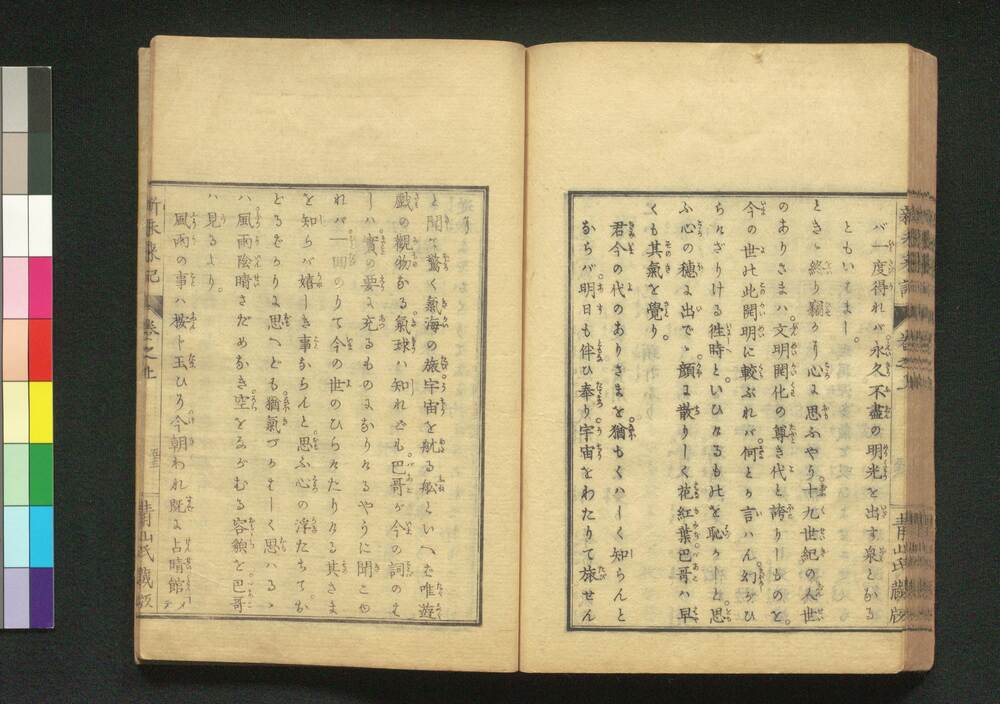 バ一度得れバ永久不盡の明光を出す泉とかる
ともいてまー。
ときゝ終り顧りり心に思ふやう十九世紀の人世
のありさまハ文明開化の尊き代と誇りーものを。
今の世此此開明に較ぶれバ何とか言ハん幻らひ
ちらざりける往時といひなるも此を恥かーと思
ふ心の穂に出でゝ顔に散りーく花紅葉巴哥ハ早
くも其氣を覺り。
君今の代のありさまを猶もくハーく知らんと
ならバ明日も伴ひ奉り宇宙をわたりて旅せん
と聞て驚く氣海の旅宇宙を航る舩といへば唯遊
戯の觀物なる氣球ハ知れども巴哥が今の詞のま
ーハ實の要に充るものになりけるやうに聞こや
れバ一回のりて今の世のひらけたりける其さま
を知らバ嬉ーき事ならんと思ふ心の浮たちてか
どるをかりに思へども猶氣づかハーく思ハるゝ
ハ風雨陰晴さだめなき空をながむる容貌を巴哥
ハ見るより。
風雨の事ハ擬ト玉ひろ今朝われ既に占晴館
新未來記 巻之上 青山氏藏版